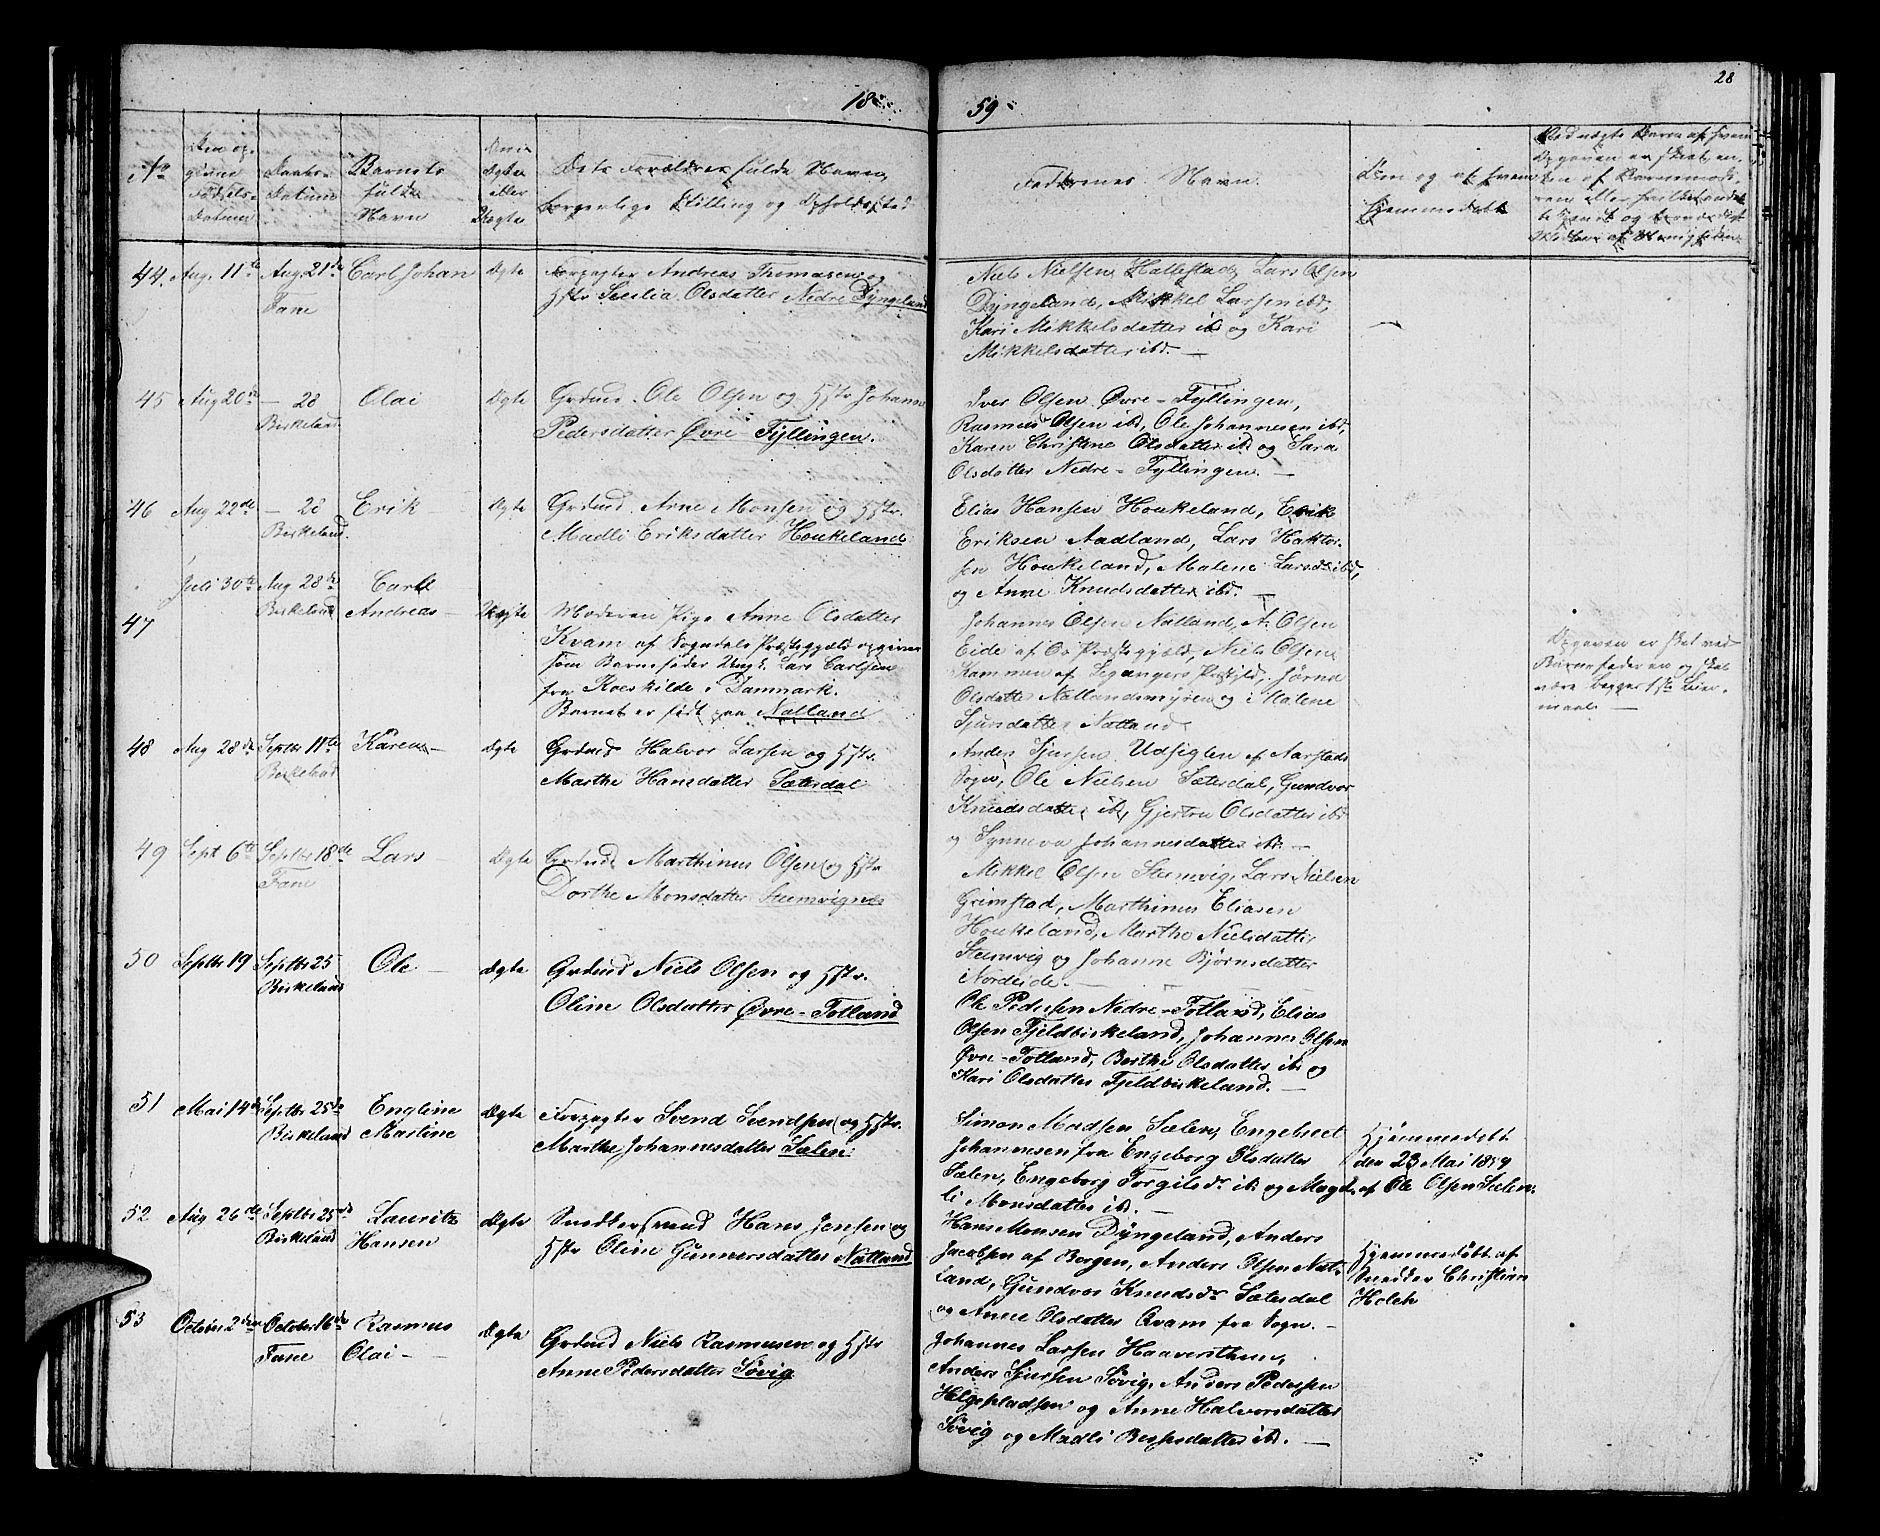 28
1859
No
Den opgivne Fødsels-Datum
Daabs-Datum
Barnets fulde Navn
Om Ægte eller Uægte
Dets Forældres fulde Navn, borgerlige Stilling og Opholdssted
Faddernes Navn.
Den og af hvem Hjemmedøbt
44. Aug. 11te Aug 21de Fane Carl Johan Ægte
Forpagter Andreas Thomasen og
Hstr Secilia Olsdatter Nedre Dyngeland
Niels Nielsen Hallestad, Lars Olsen
Dyngeland, Mikkel Larsen ibd,
Kari Mikkelsdatter ibd og Kari
Mikkelsdatter ibd. —
45 Aug 20de — 28 Birkeland Olai Ægte
Grdmd. Ole Olsen og Hstr Johanne
Pedersdatter Øvre-Fyllingen.
Iver Olsen Øvre-Fyllingen,
Rasmus Olsen ibd, Ole Johannesen ibd,
Karen Christine Olsdatter ibd og Sara
Olsdatter Nedre-Fyllingen. —
46 Aug 22de — 28 Birkeland. Erik — Ægte
Grdmd. Arne Monsen og Hstr.
Madli Eriksdatter Houkeland
Elias Hansen Houkeland, Erik
Eriksen Aadland, Lars Haktor-
sen Houkeland, Malene Larsdtr ibd,
og Anne Knudsdatter ibd. —
47 Juli 30te Aug 28de Birkeland Carl Andreas — Uægte
Moderen Pige Anne Olsdatter
Kvam af Sogndals Præstegjæld opgiver
som Barnefader Ungk. Lars Carlsen
fra Roeskilde i Danmark.
Barnet er født paa Natland
Johannes Olsen Natland, A. Olsen
Eide af Os Præstegjæld, Niels Olsen
Kammen af Leganger Prstgjld, Jørna
Olsdatter Natlandsmyren og Malene
Sjursdatter Natland
Opgaven er sket ved
Barnefaderen og skal
være begges 1ste Leier-
maal —
48 Aug 28de Septbr 11te Birkeland Karen — Ægte
Grdmd Halvor Larsen og Hstr.
Marthe Hansdatter Sætersdal
Anders Sjursen Udsiglen af Aarstads
Sogn, Ole Nielsen Sætersdal, Gundvor
Knudsdatter ibd, Gjertru Olsdatter ibd
og Synneva Johannesdatter ibd. —
49 Sept 6te Septbr 18de Fane Lars — Ægte
Grdmd. Marthinus Olsen og Hstr
Dorthe Monsdatter Steinvignes
Mikkel Olsen Steinvig, Lars Nielsen
Grimstad, Marthinus Eliasen
Houkeland, Marthe Nielsdatter
Steinvig og Johanne Bjørnsdatter
Nordeide. —
50 Septbr 19 Septbr 25 Birkeland Ole — Ægte
Grdmd Niels Olsen og Hstr.
Oline Olsdatter Øvre-Totland
Ole Pedersen Nedre-Totland, Elias
Olsen Fjeldbirkeland, Johannes Olsen
Øvre-Totland, Berthe Olsdatter ibd og
Kari Olsdatter Fjeldbirkeland. —
51 Mai 14de Septbr 25de Birkeland Engline Martine Ægte
Forpagter Svend Svendsen og Hstr.
Marthe Johannesdatter Sælen
Simon Madsen Sælen, Engebret
Johannesen fra Engeborg Olsdatter
Sælen, Engeborg Torgilsdr ibd og Magd-
li Monsdatter ibd. —
Hjemmedøbt
den 23 Mai 1859
af Ole Olsen Sælen.
52 Aug 26de Septbr 25de Birkeland Lauritz Hansen Ægte
Snedkersvend Hans Jensen og
Hstr Oline Gunnersdatter Natland
Hans Monsen Dyngeland, Anders
Jacobsen af Bergen, Anders Olsen Nat-
land, Gundvor Knudsdr Sætersdal
og Anne Olsdatter Qvam fra Sogn. —
Hjemmedøbt af
Snedker Christian
Holch
53 October 2den October 16de Fane Rasmus Olai — Ægte
Grdmd Niels Rasmusen og Hstr
Anne Pedersdatter Søvig
Johannes Larsen Haaversthun,
Anders Sjursen Søvig, Anders Pedersen
Helgepladsen og Anne Halvorsdatter
Søvig og Madli Bespsdatter ibd. —